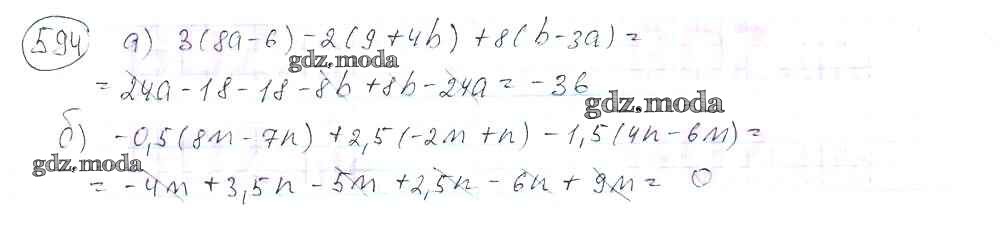 594 а) 3(8a-6)-2(9+4b)+8(b-3a)=
gdz.moda
=24a-18-18-8b+8b-24a=-36
gdz.moda
б) -0,5(8m-7n)+2,5(-2m+n)-1,5(4n-6m)=
gdz.moda
=-4m+3,5n-5m+2,5n-6n+9m=0